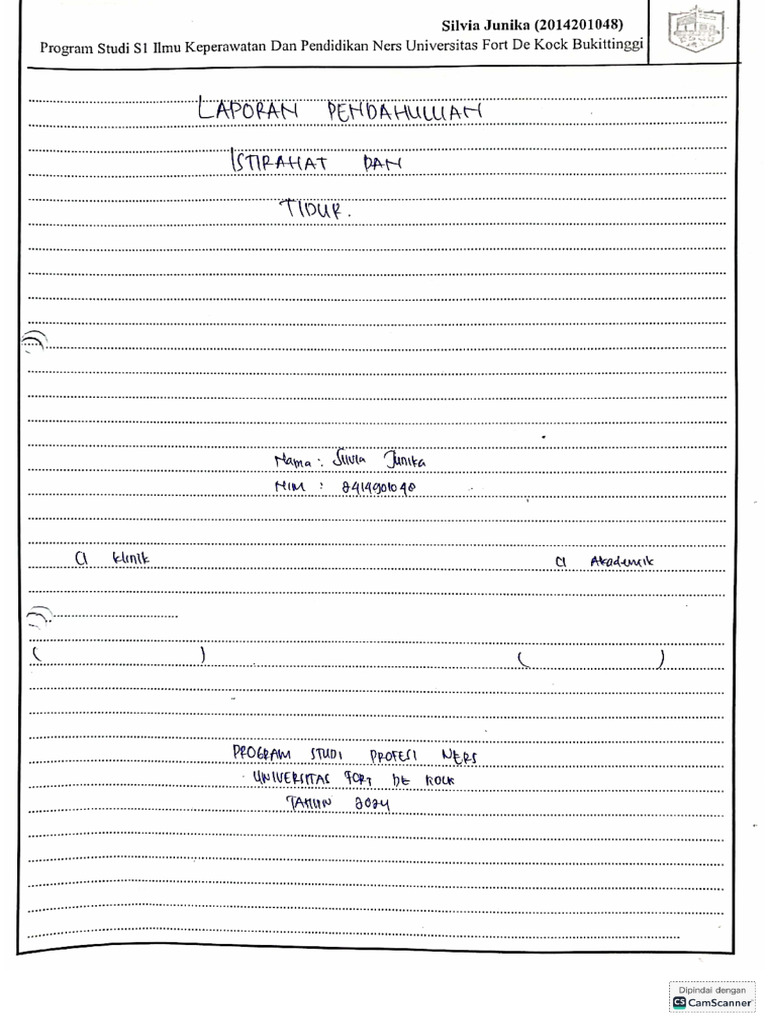 Silvia Junika (2014201048)
Program Studi S1 Ilmu Keperawatan Dan Pendidikan Ners Universitas Fort De Kock Bukittinggi
LAPORAN PENDAHULUAN
ISTIRAHAT DAN
TIDUR.
Nama : Silvia Junika
NIM : 2414901048
CI Klinik
CI Akademik
( )
( )
PROGRAM STUDI PROFESI NERS
UNIVERSITAS FORT DE KOCK
TAHUN 2024
Dipindai dengan
CS CamScanner